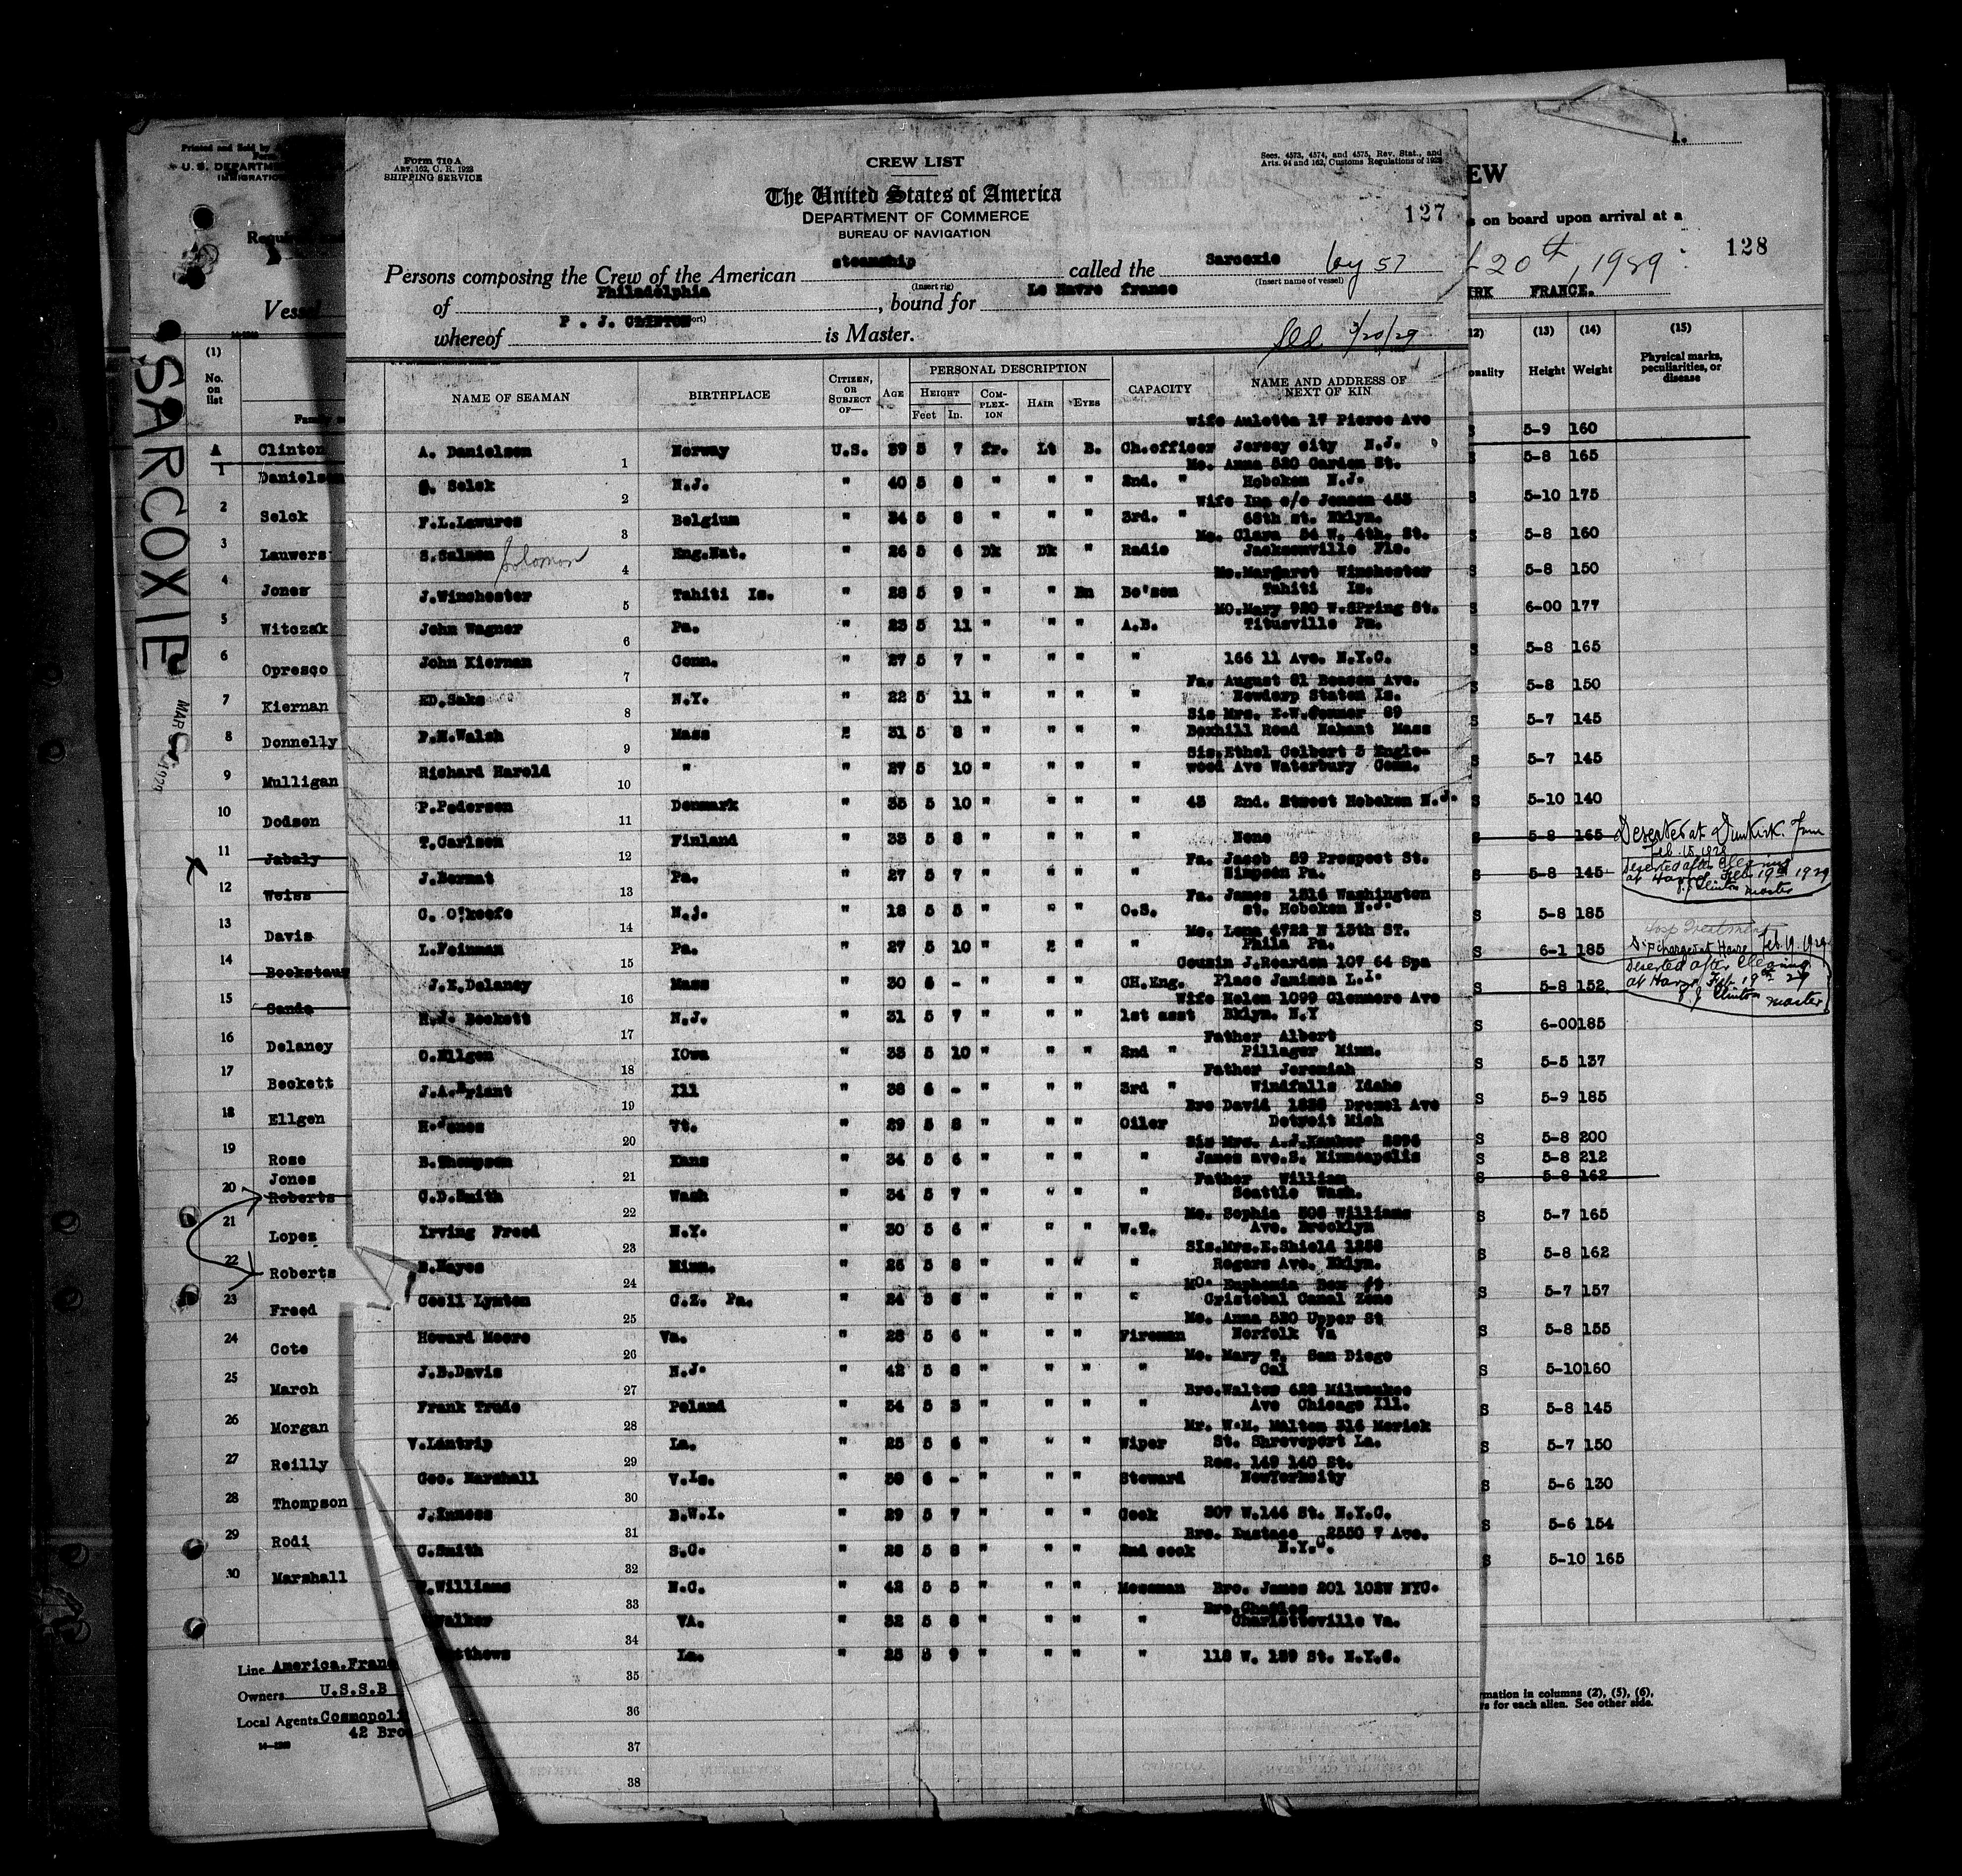 Form 710 A
ART. 162, C. R. 1923
SHIPPING SERVICE
CREW LIST
Secs. 4573, 4574, and 4575, Rev. Stat., and
Arts. 94 and 162, Customs Regulations of 1923
The United States of America
DEPARTMENT OF COMMERCE
BUREAU OF NAVIGATION
127
Persons composing the Crew of the American steamship called the Sarcoxie
(Insert rig) (Insert name of vessel)
of Philadelphia, bound for Le Havre france
whereof P. J. CLINTON is Master.
NAME OF SEAMAN BIRTHPLACE CITIZEN, OR SUBJECT OF— AGE PERSONAL DESCRIPTION HEIGHT Feet In. COMPLEXION HAIR EYES CAPACITY NAME AND ADDRESS OF NEXT OF KIN
wife Auletta 17 Pierce Ave
A. Danielsen 1 Norway U.S. 39 5 7 fr. Lt B. Ch.officer Jersey city N.J.
Mo. Anna 520 Garden St.
S. Selck 2 N.J. " 40 5 8 " " " 2nd. " Hoboken N.J.
Wife Ina c/o Jensen 455
F.L.Lawures 3 Belgium " 34 5 8 " " " 3rd. " 68th st. Bklyn.
Mo. Clara 54 W. 4th. St.
S.Salmon Solomon 4 Eng.Nat. " 26 5 6 Dk Dk " Radio Jacksonville Flo.
Mo.Margaret Winchester
J.Winchester 5 Tahiti Is. " 28 5 9 " " Bn Bo'sen Tahiti Is.
MO.Mary 920 W.SPring St.
John Wagner 6 Pa. " 23 5 11 " " " A.B. Titusville Pa.
John Kiernan 7 Conn. " 27 5 7 " " " " 166 11 Ave. N.Y.C.
Fa. August 81 Beacon Ave.
ED.Saks 8 N.Y. " 22 5 11 " " " " Newdorp Staten Is.
Sis Mrs. 89
F.M.Walsh 9 Mass 31 5 8 " " " " Boxhill Road Nahant Mass
Sis.Ethel Colbert 5 Engle-
Richard Harold 10 " " 27 5 10 " " " " wood Ave Waterbury Conn.
P.Pedersen 11 Denmark " 35 5 10 " " " " 43 2nd. Street Hoboken N.J.
T.Carlson 12 Finland " 33 5 8 " " " " None
Fa. Jacob 59 Prospect St.
J.Bermat 13 Pa. " 27 5 7 " " " " Simpson Pa.
Fa. James 1216 Washington
C. O'keefe 14 N.j. " 18 5 5 " " " O.S. st. Hoboken N.J.
Mo. Lena 4722 N 13th ST.
L.Feinman 15 Pa. " 27 5 10 " " " Phila Pa.
Cousin J.Rearden 107 64 Spa
J.E.Delaney 16 Mass " 30 6 - " " " CH.Eng. Place Jamiaca L.I.
Wife Helen 1099 Glenmore Ave
H.J. Beckett 17 N.J. " 31 5 7 " " " 1st asst Bklyn. N.Y
Father Albert
O.Ellgen 18 IOwa " 33 5 10 " " " 2nd " Pillager Minn.
Father Jeremiah
J.A.Briant 19 Ill " 38 6 - " " " 3rd " Windfalls Idaho
Bro David 1828 Drexel Ave
H.Jones 20 Vt. " 29 5 8 " " " Oiler Detroit Mich
Sis Mrs. A.J.Kanker 2896
B.Thompson 21 Kans " 34 5 6 " " " " James ave.S. Minneapolis
Father William
C.D.Smith 22 Wash " 34 5 7 " " " " Seattle Wash.
Mo. Sophia 508 Williams
Irving Freed 23 N.Y. " 30 5 6 " " " W.T. Ave. Brooklyn
Sis.Mrs.E.Shield 1258
N.Hayes 24 Minn. " 25 5 8 " " " " Rogers Ave. Bklyn.
MO. Euphemia Box
Cecil Lynton 25 C.Z. Pa. " 24 5 8 " " " " Cristobal Canal Zone
Mo. Anna 520 Upper St
Howard Moore 26 Va. " 28 5 6 " " " Fireman Norfolk Va
Mo. Mary T. San Diego
J.B.Davis 27 N.J. " 42 5 8 " " " " Cal
Bro.Walter 628 Milwaukee
Frank Trude 28 Poland " 34 5 5 " " " " Ave Chicago Ill.
Mr. W.M. Malton 316 Merick
V.Lantrip 29 La. " 25 5 6 " " " Wiper St. Shreveport La.
Res. 149 140 St.
Geo. Marshall 30 V.Is. " 39 6 - " " " Steward NewYorkcity
J.Enness 31 B.W.I. " 29 5 7 " " " Cook 307 W.146 St. N.Y.C.
Bro. Eustace 2550 7 Ave.
C.Smith 32 S.C. " 28 5 8 " " " 2nd cook N.Y.C.
Williams 33 N.C. " 42 5 5 " " " Messman Bro. James 201 102W NYC.
Bro.Charles
Walker 34 VA. " 32 5 8 " " " " Charlotteville Va.
tthews 35 La. " 25 5 9 " " " " 118 W. 139 St. N.Y.C.
36
37
38
Printed and Sold by
U. S. DEPARTME
IMMIGRATION
Vessel
SARCOXIE
MAR 1929
(1)
No. on list
A Clinton
1 Danielsen
2 Selck
3 Lauwers
4 Jones
5 Witczak
6 Opresco
7 Kiernan
8 Donnelly
9 Mulligan
10 Dodson
11 Jabaly
12 Weiss
13 Davis
14 Beekstaug
15 Sande
16 Delaney
17 Beckett
18 Ellgen
19 Rose
Jones
20 Roberts
21 Lopez
22 Roberts
23 Freed
24 Cote
25 March
26 Morgan
27 Reilly
28 Thompson
29 Rodi
30 Marshall
Line America.Fran
Owners U.S.S.B
Local Agents Cosmopoli
42 Bro
1.
EW
s on board upon arrival at a
128
20th, 1929
IRK FRANCE.
12) (13) (14) (15)
onality Height Weight Physical marks, peculiarities, or disease
S 5-9 160
S 5-8 165
S 5-10 175
S 5-8 160
S 5-8 150
S 6-00 177
S 5-8 165
S 5-8 150
S 5-7 145
S 5-7 145
S 5-10 140
S 5-8 165 Deserted at Dunkirk. Fran
Feb. 15, 1929
S 5-8 145 Deserted after clearing
at Havre Feb 19th 1929
P. J. Clinton master
S 5-8 185
Hosp Treatment
S 6-1 185 Dischargeat Havre Feb. 19. 1929
S 5-8 152 Deserted after Clearing
at Havre Feb. 19th 29
P J Clinton master
S 6-00 185
S 5-5 137
S 5-9 185
S 5-8 200
S 5-8 212
S 5-8 162
S 5-7 165
S 5-8 162
S 5-7 157
S 5-8 155
S 5-10 160
S 5-8 145
S 5-7 150
S 5-6 130
S 5-6 154
S 5-10 165
rmation in columns (2), (5), (6),
s for each alien. See other side.